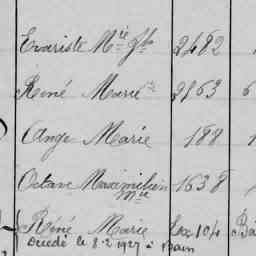 Evariste Mie Jh 2482
René Marie 2563 6
Ange Marie 188 1
Octave Maximilien Mie 1638
René Marie Lex 104 Ba
Décédé le 8-2-1927 à Bain